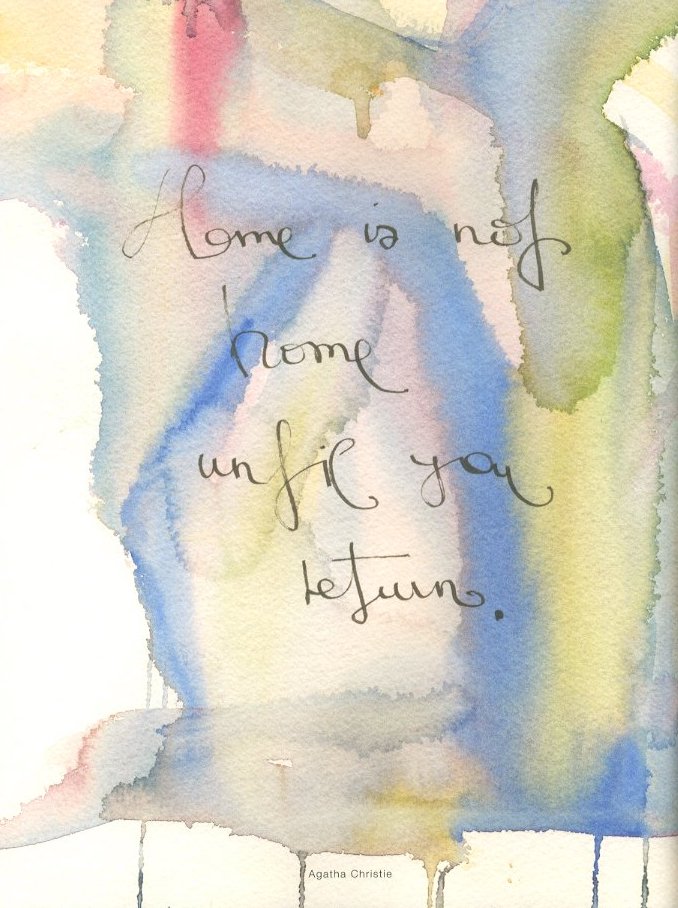 Home is not
home
until you
return.
Agatha Christie